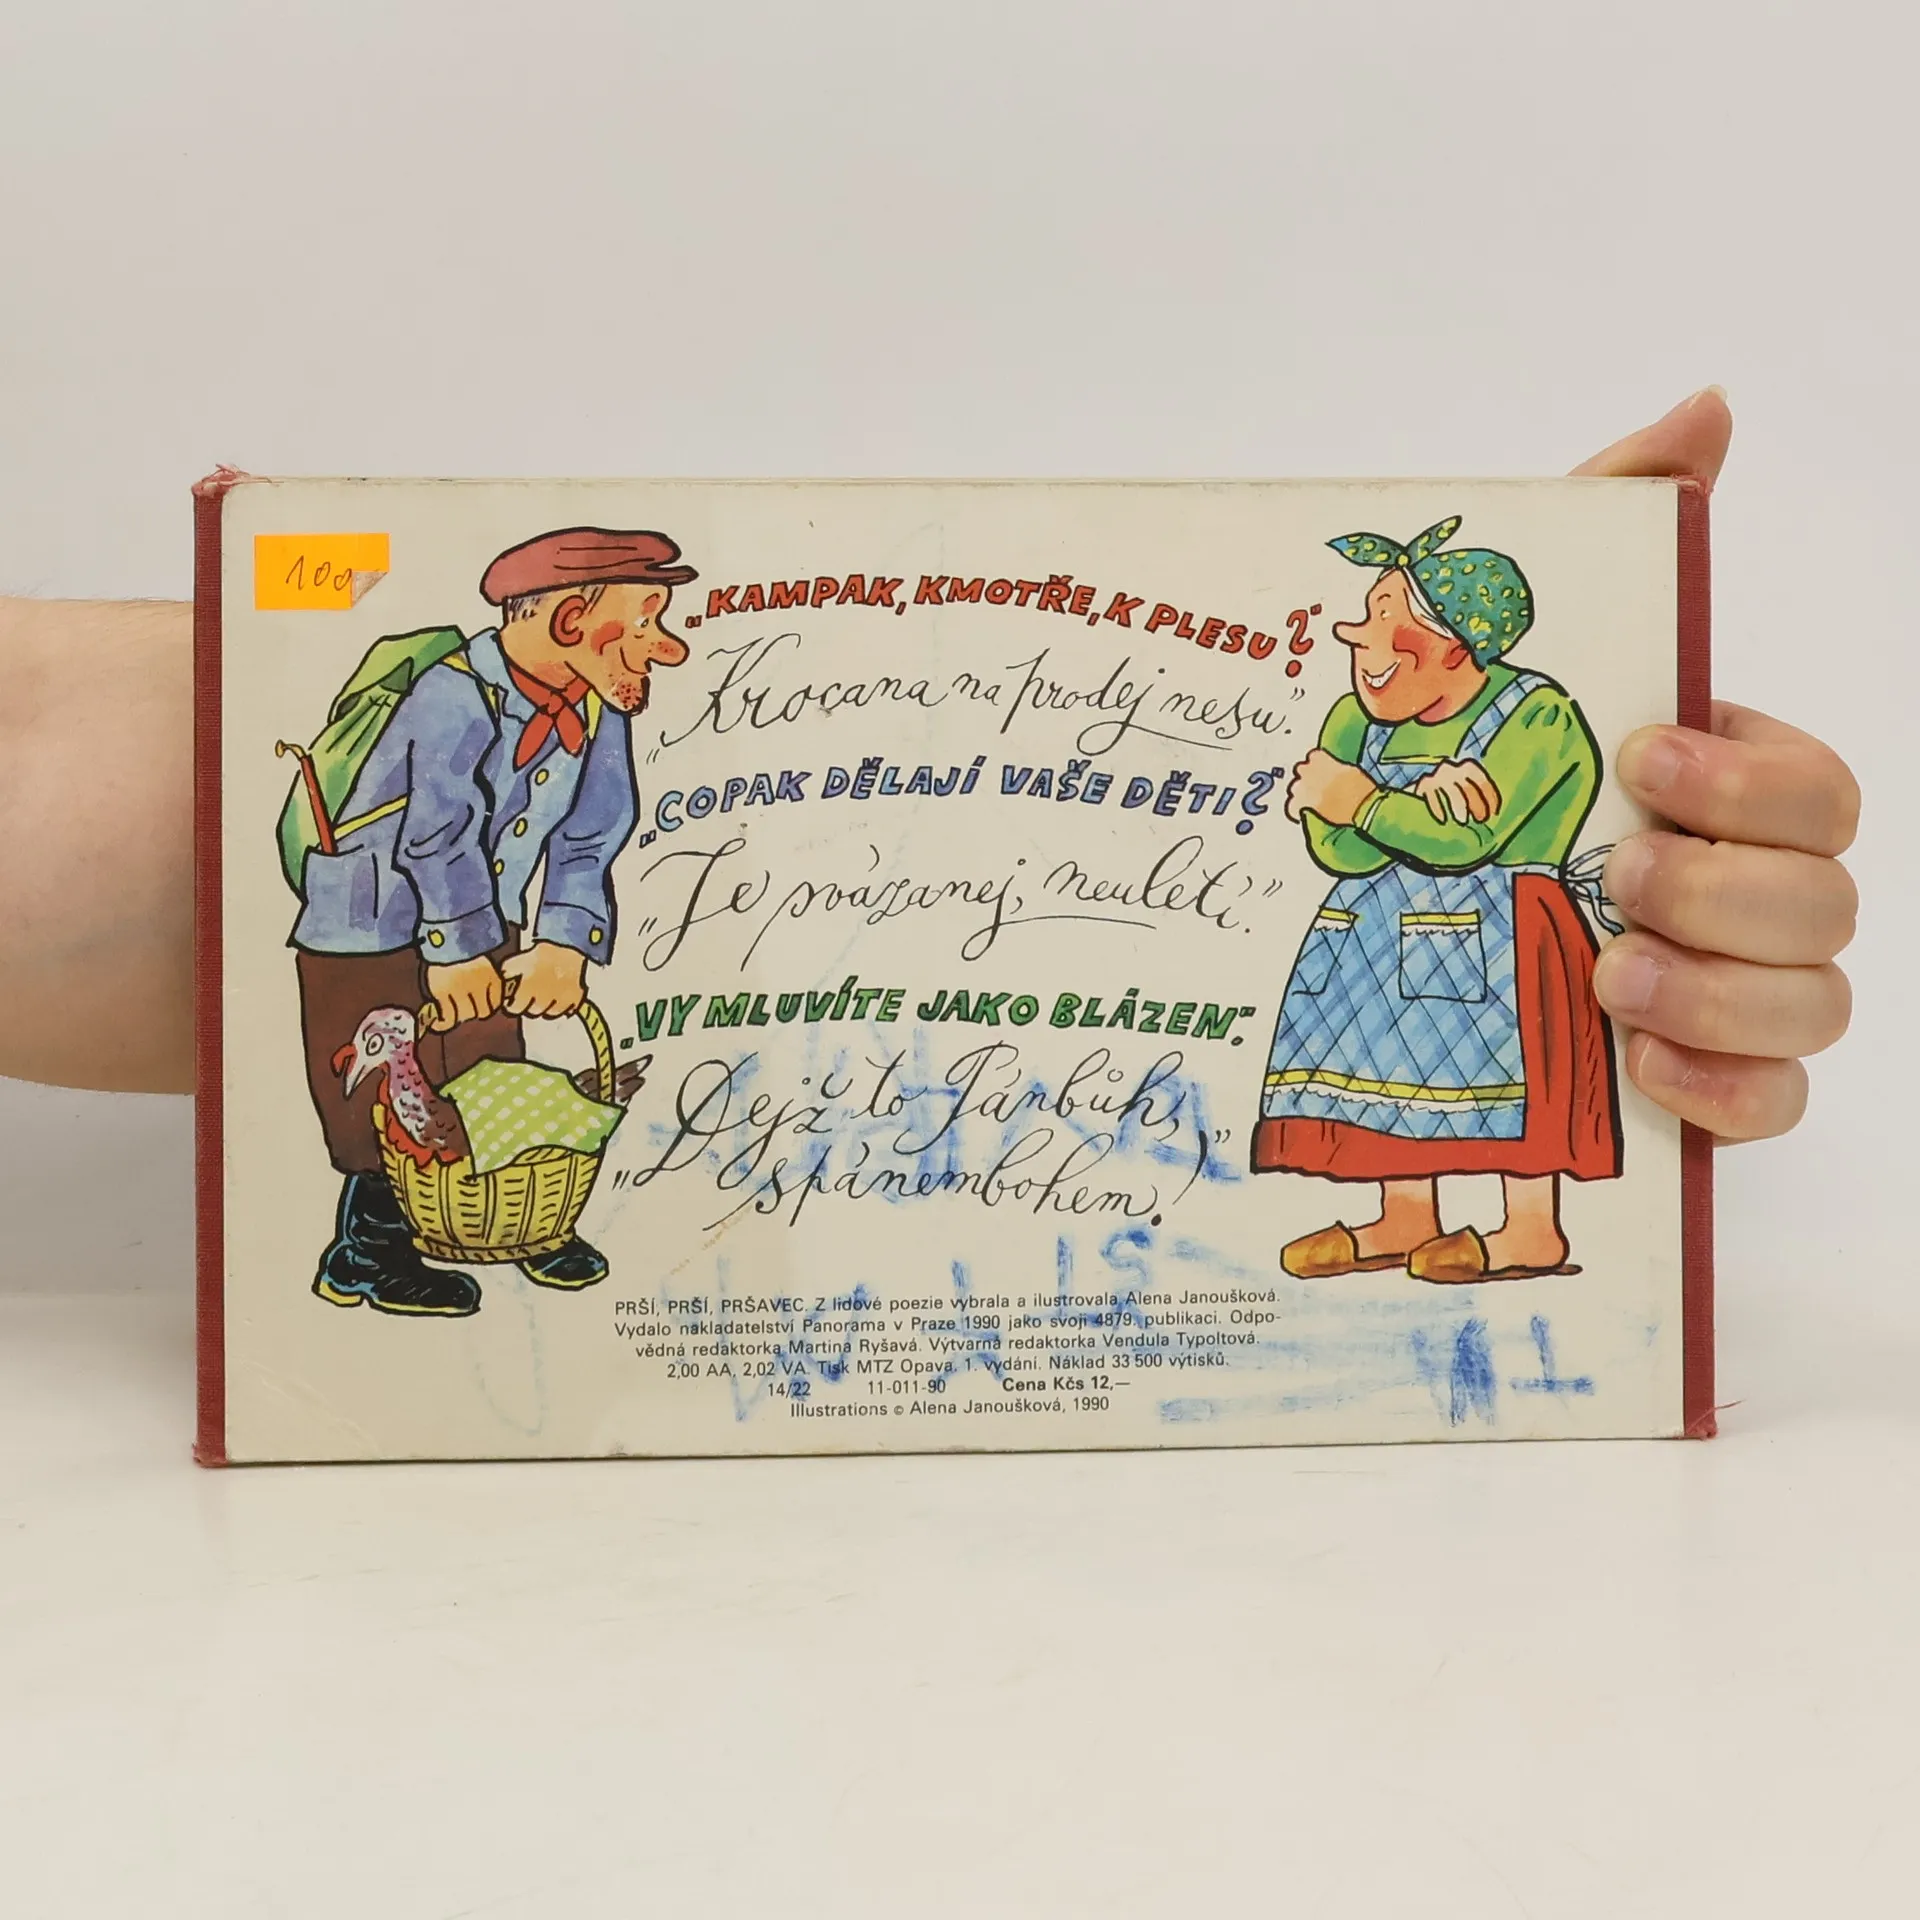 100
„KAMPAK, KMOTŘE, K PLESU?“
„Krocana na prodej nesu.“
„COPAK DĚLAJÍ VAŠE DĚTI?“
„Je svázanej, neuletí.“
„VY MLUVÍTE JAKO BLÁZEN.“
„Dejž to Pánbůh,
spánembohem!“
PRŠÍ, PRŠÍ, PRŠAVEC. Z lidové poezie vybrala a ilustrovala Alena Janoušková.
Vydalo nakladatelství Panorama v Praze 1990 jako svoji 4879. publikaci. Odpo-
vědná redaktorka Martina Ryšavá. Výtvarná redaktorka Vendula Typoltová.
2,00 AA, 2,02 VA. Tisk MTZ Opava. 1. vydání. Náklad 33 500 výtisků.
14/22 11-011-90 Cena Kčs 12,—
Illustrations © Alena Janoušková, 1990